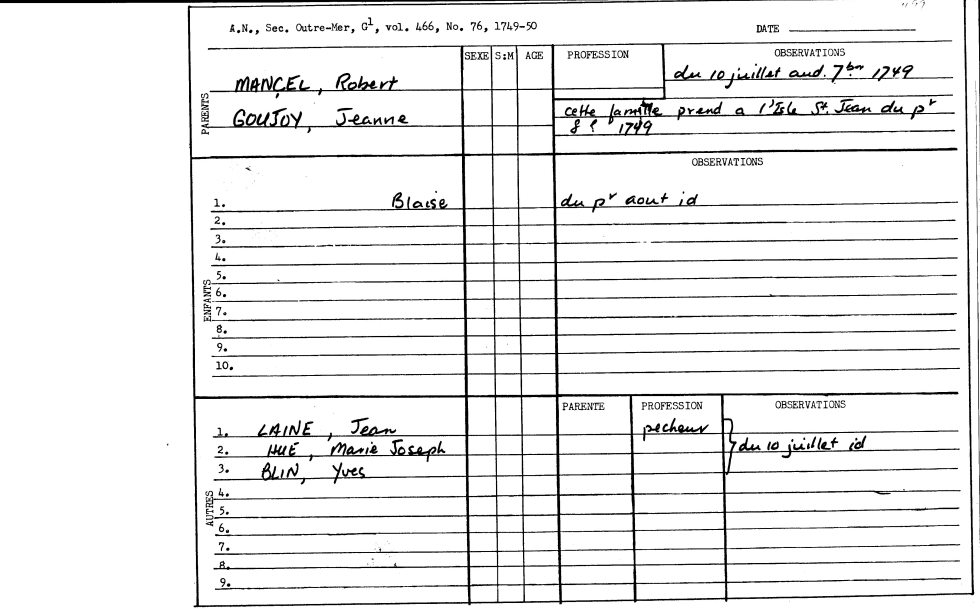 A.N., Sec. Outre-Mer, G1, vol. 466, No. 76, 1749-50
DATE
SEXE S:M AGE PROFESSION OBSERVATIONS
PARENTS
MANÇEL, Robert du 10 juillet aud. 7bre 1749
GOUJOY, Jeanne cette famille prend a l'Isle St. Jean du pr
1749
OBSERVATIONS
ENFANTS
1. Blaise du pr aout id
2.
3.
4.
5.
6.
7.
8.
9.
10.
PARENTE PROFESSION OBSERVATIONS
AUTRES
1. LAINE, Jean pecheur
2. HUE, Marie Joseph du 10 juillet id
3. BLIN, Yves
4.
5.
6.
7.
8.
9.